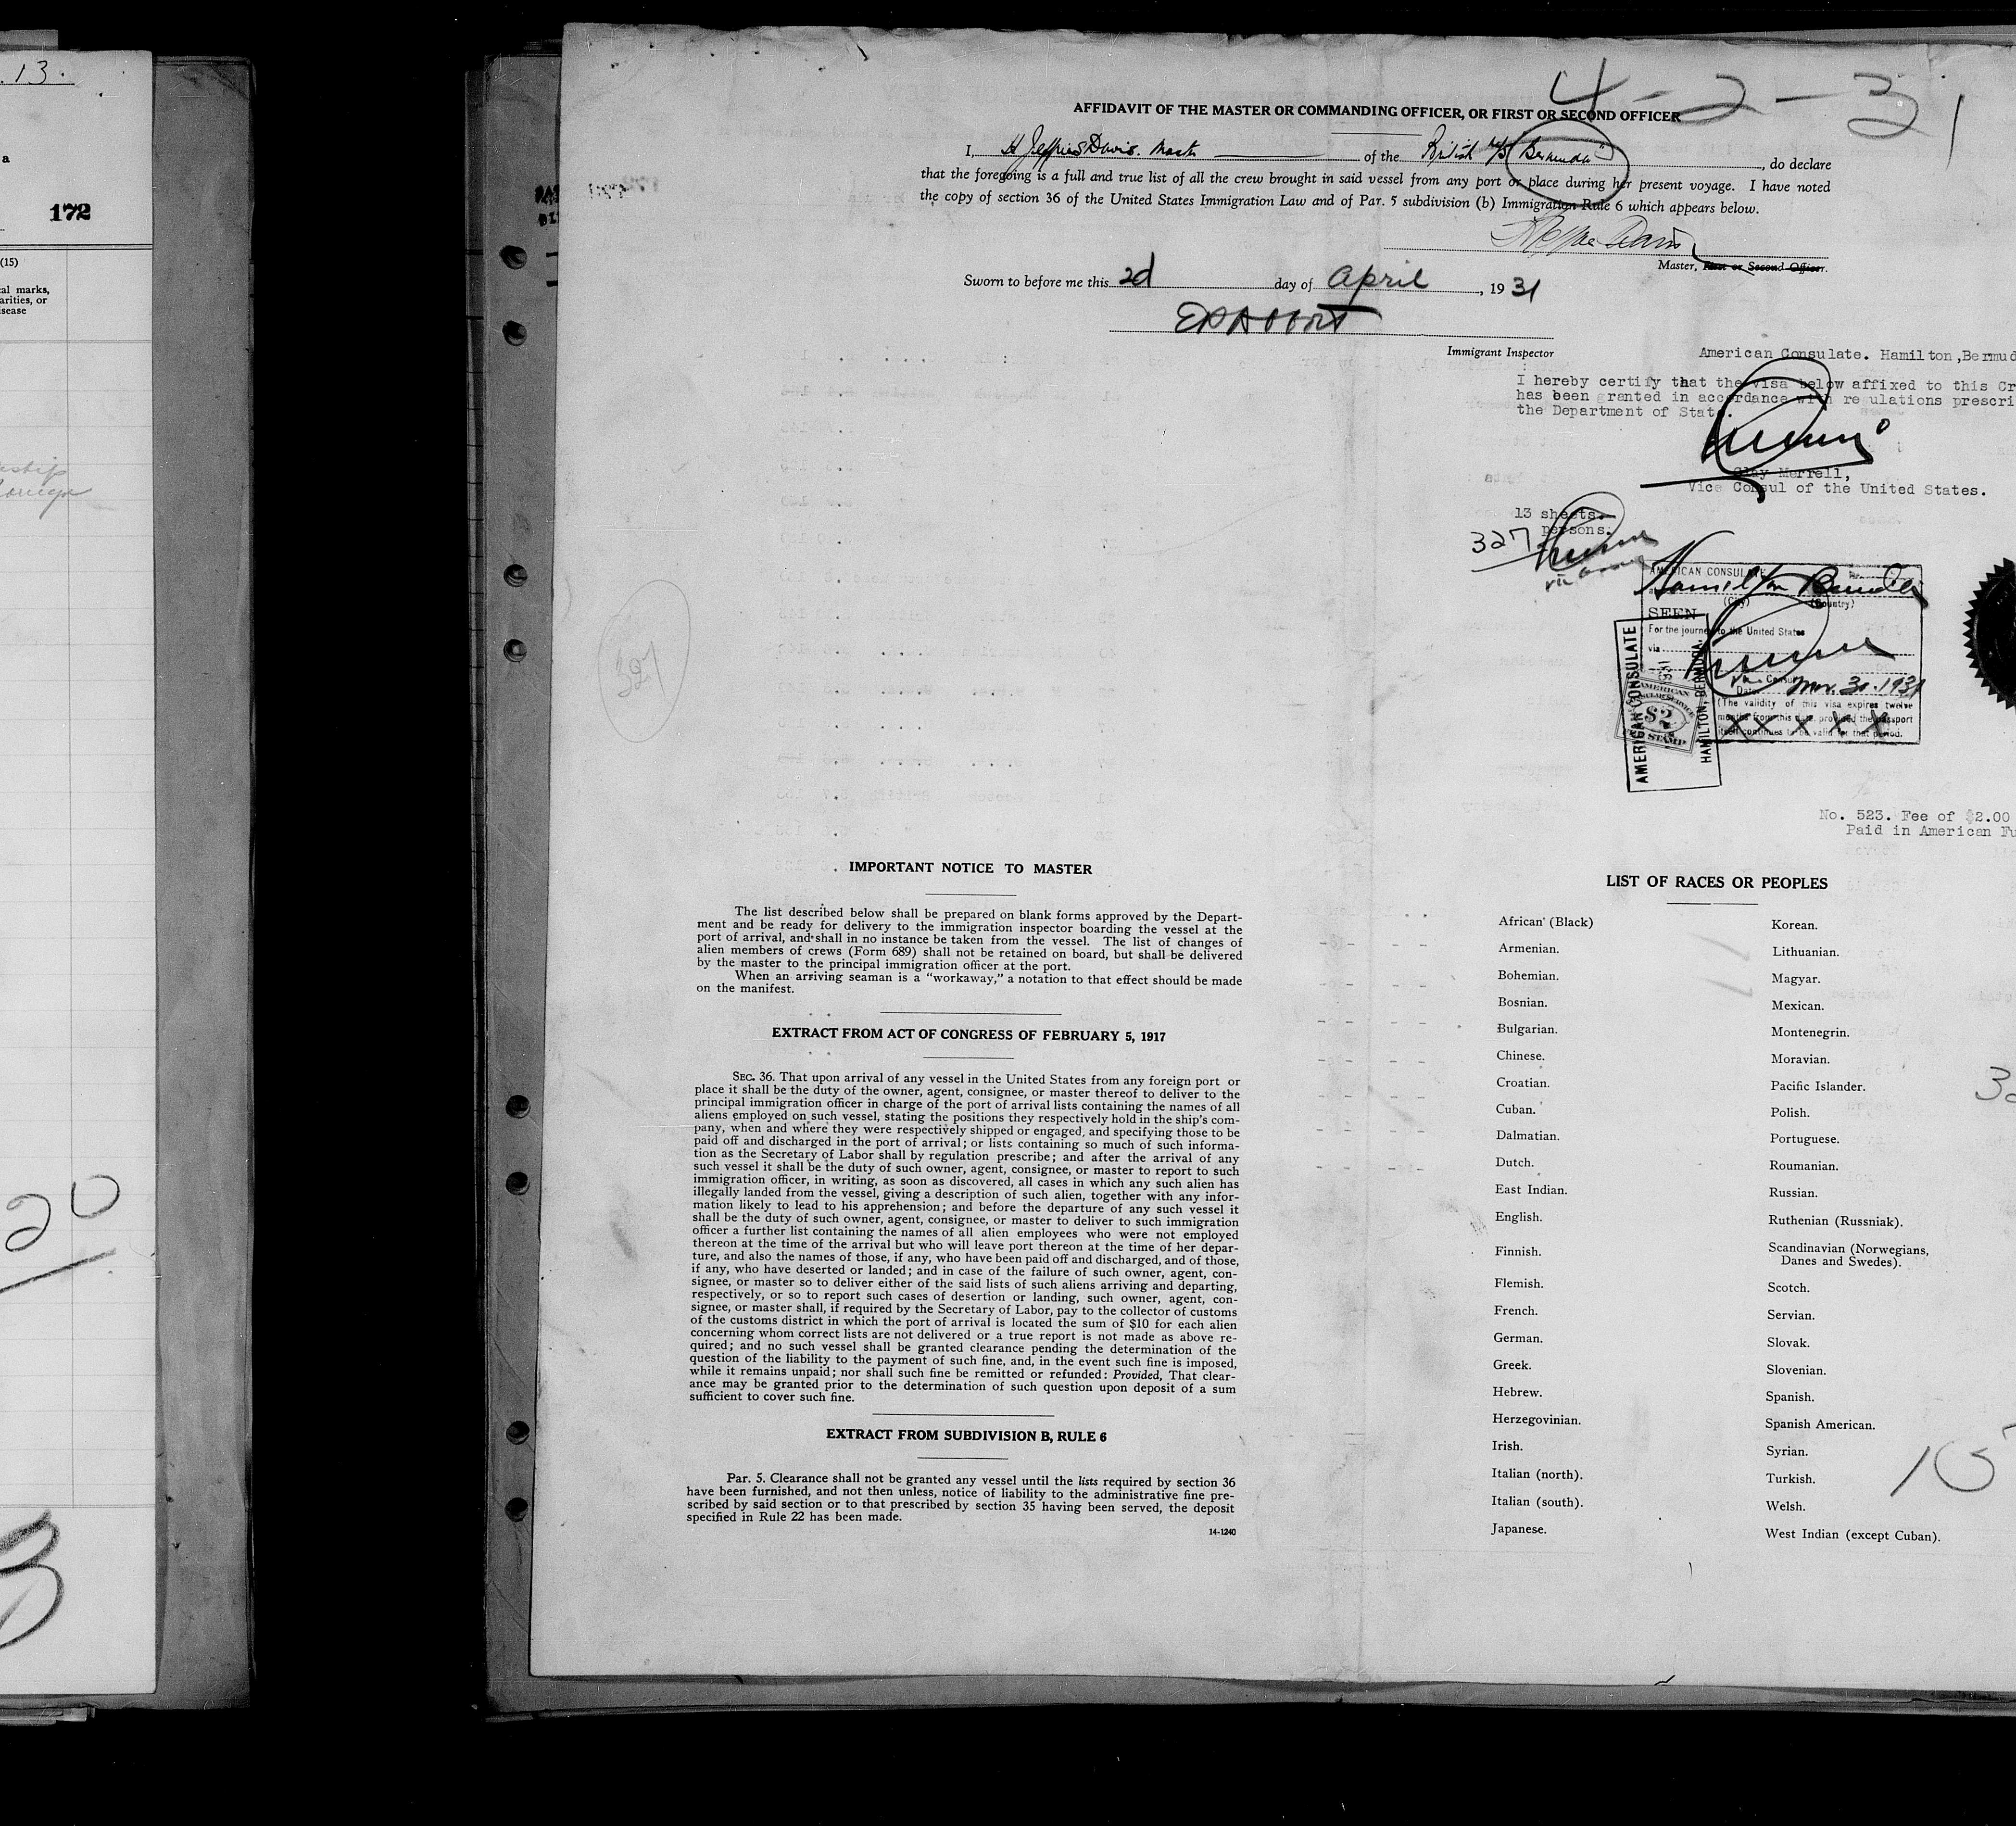 .13.
a
172
(15)
al marks,
arities, or
sease
20
3
4-2-31
AFFIDAVIT OF THE MASTER OR COMMANDING OFFICER, OR FIRST OR SECOND OFFICER
I, H Jeffries Davis. Master of the British M/S "Bermuda", do declare
that the foregoing is a full and true list of all the crew brought in said vessel from any port or place during her present voyage. I have noted
the copy of section 36 of the United States Immigration Law and of Par. 5 subdivision (b) Immigration Rule 6 which appears below.
Master, First or Second Officer.
Sworn to before me this 2d day of April, 1931
Immigrant Inspector
American Consulate. Hamilton,Bermud
I hereby certify that the visa below affixed to this Cr
has been granted in accordance with regulations prescri
the Department of State.
Clay Merrell,
Vice Consul of the United States.
13 sheets.
327 persons.
AMERICAN CONSULATE
Hamilton Bermuda
(City) (Country)
SEEN
For the journey to the United States
via
Consul
Date Mar. 30. 1931
(The validity of this visa expires twelve
months from this date, provided the passport
itself continues to be valid for that period.
X X X X X
AMERICAN CONSULATE
HAMILTON, BERMUDA.
AMERICAN
CONSULAR SERVICE
$2
FEE STAMP
327
No. 523. Fee of $2.00
Paid in American Fu
IMPORTANT NOTICE TO MASTER
The list described below shall be prepared on blank forms approved by the Depart-
ment and be ready for delivery to the immigration inspector boarding the vessel at the
port of arrival, and shall in no instance be taken from the vessel. The list of changes of
alien members of crews (Form 689) shall not be retained on board, but shall be delivered
by the master to the principal immigration officer at the port.
When an arriving seaman is a "workaway," a notation to that effect should be made
on the manifest.
EXTRACT FROM ACT OF CONGRESS OF FEBRUARY 5, 1917
SEC. 36. That upon arrival of any vessel in the United States from any foreign port or
place it shall be the duty of the owner, agent, consignee, or master thereof to deliver to the
principal immigration officer in charge of the port of arrival lists containing the names of all
aliens employed on such vessel, stating the positions they respectively hold in the ship's com-
pany, when and where they were respectively shipped or engaged, and specifying those to be
paid off and discharged in the port of arrival; or lists containing so much of such informa-
tion as the Secretary of Labor shall by regulation prescribe; and after the arrival of any
such vessel it shall be the duty of such owner, agent, consignee, or master to report to such
immigration officer, in writing, as soon as discovered, all cases in which any such alien has
illegally landed from the vessel, giving a description of such alien, together with any infor-
mation likely to lead to his apprehension; and before the departure of any such vessel it
shall be the duty of such owner, agent, consignee, or master to deliver to such immigration
officer a further list containing the names of all alien employees who were not employed
thereon at the time of the arrival but who will leave port thereon at the time of her depar-
ture, and also the names of those, if any, who have been paid off and discharged, and of those,
if any, who have deserted or landed; and in case of the failure of such owner, agent, con-
signee, or master so to deliver either of the said lists of such aliens arriving and departing,
respectively, or so to report such cases of desertion or landing, such owner, agent, con-
signee, or master shall, if required by the Secretary of Labor, pay to the collector of customs
of the customs district in which the port of arrival is located the sum of $10 for each alien
concerning whom correct lists are not delivered or a true report is not made as above re-
quired; and no such vessel shall be granted clearance pending the determination of the
question of the liability to the payment of such fine, and, in the event such fine is imposed,
while it remains unpaid; nor shall such fine be remitted or refunded: Provided, That clear-
ance may be granted prior to the determination of such question upon deposit of a sum
sufficient to cover such fine.
EXTRACT FROM SUBDIVISION B, RULE 6
Par. 5. Clearance shall not be granted any vessel until the lists required by section 36
have been furnished, and not then unless, notice of liability to the administrative fine pre-
scribed by said section or to that prescribed by section 35 having been served, the deposit
specified in Rule 22 has been made.
14-1240
LIST OF RACES OR PEOPLES
African (Black)
Armenian.
Bohemian.
Bosnian.
Bulgarian.
Chinese.
Croatian.
Cuban.
Dalmatian.
Dutch.
East Indian.
English.
Finnish.
Flemish.
French.
German.
Greek.
Hebrew.
Herzegovinian.
Irish.
Italian (north).
Italian (south).
Japanese.
Korean.
Lithuanian.
Magyar.
Mexican.
Montenegrin.
Moravian.
Pacific Islander.
Polish.
Portuguese.
Roumanian.
Russian.
Ruthenian (Russniak).
Scandinavian (Norwegians,
Danes and Swedes).
Scotch.
Servian.
Slovak.
Slovenian.
Spanish.
Spanish American.
Syrian.
Turkish.
Welsh.
West Indian (except Cuban).